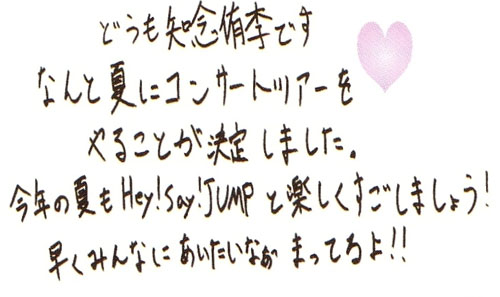 どうも知念侑李です
なんと夏にコンサートツアーを
やることが決定しました。
今年の夏もHey!Say!JUMPと楽しくすごしましょう!
早くみんなにあいたいなぁ まってるよ!!